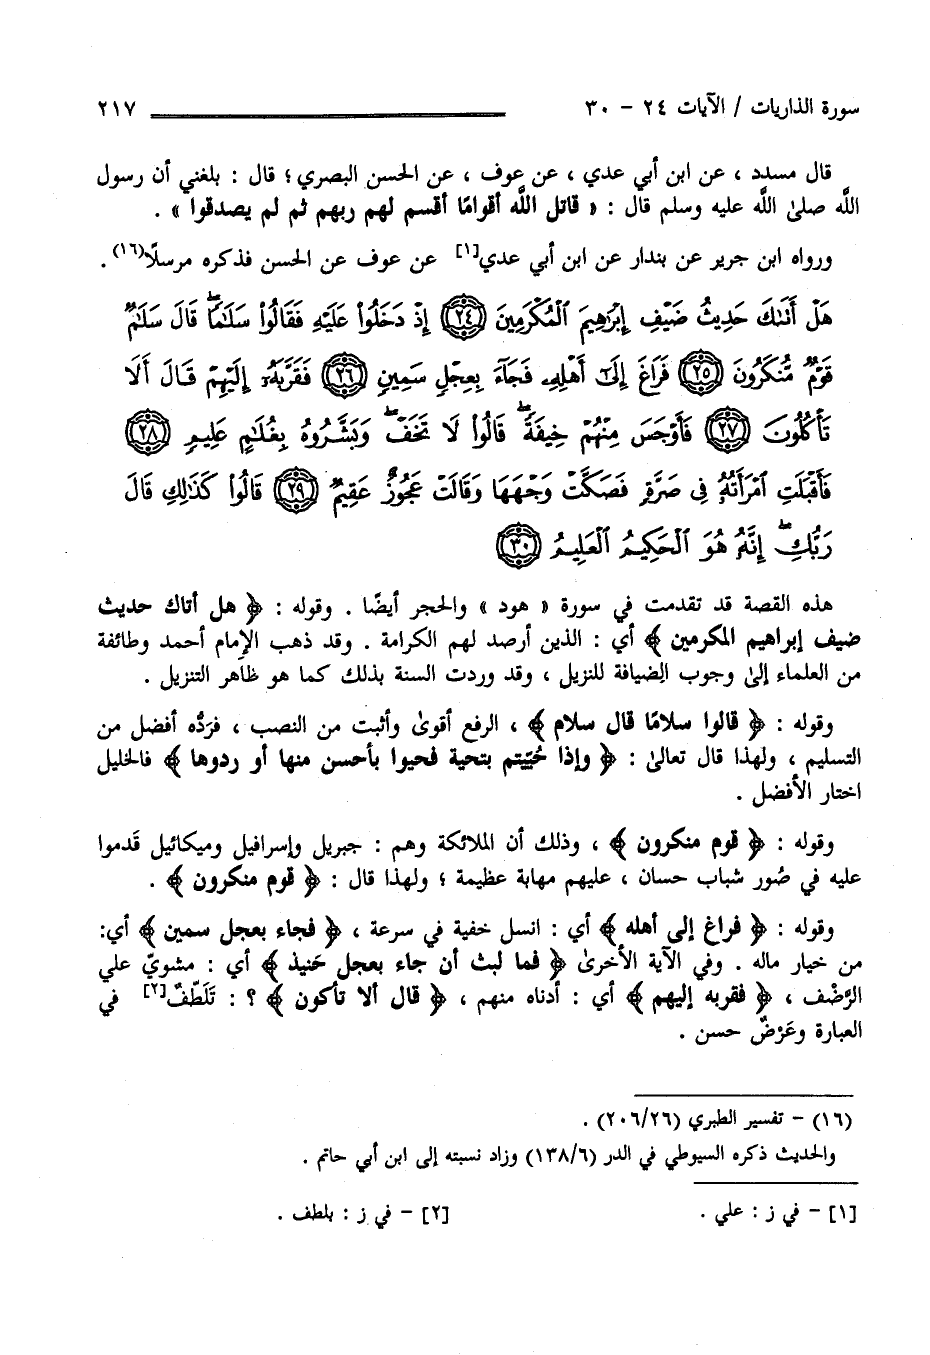 سورة الذاريات / الآيات ٢٤ - ٣٠ ٢١٧
قال مسدد ، عن ابن أبي عدي ، عن عوف ، عن الحسن البصري ؛ قال : بلغني أن رسول
الله صلى الله عليه وسلم قال : « قاتل الله أقوامًا أقسم لهم ربهم ثم لم يصدقوا » .
ورواه ابن جرير عن بندار عن ابن أبي عدي[١] عن عوف عن الحسن فذكره مرسلًا(١٦) .
هَلْ أَتَىٰكَ حَدِيثُ ضَيْفِ إِبْرَٰهِيمَ ٱلْمُكْرَمِينَ ﴿٢٤﴾ إِذْ دَخَلُوا۟ عَلَيْهِ فَقَالُوا۟ سَلَٰمًا ۖ قَالَ سَلَٰمٌ
قَوْمٌ مُّنكَرُونَ ﴿٢٥﴾ فَرَاغَ إِلَىٰٓ أَهْلِهِۦ فَجَآءَ بِعِجْلٍ سَمِينٍ ﴿٢٦﴾ فَقَرَّبَهُۥٓ إِلَيْهِمْ قَالَ أَلَا
تَأْكُلُونَ ﴿٢٧﴾ فَأَوْجَسَ مِنْهُمْ خِيفَةً ۖ قَالُوا۟ لَا تَخَفْ ۖ وَبَشَّرُوهُ بِغُلَٰمٍ عَلِيمٍ ﴿٢٨﴾
فَأَقْبَلَتِ ٱمْرَأَتُهُۥ فِى صَرَّةٍ فَصَكَّتْ وَجْهَهَا وَقَالَتْ عَجُوزٌ عَقِيمٌ ﴿٢٩﴾ قَالُوا۟ كَذَٰلِكِ قَالَ
رَبُّكِ ۖ إِنَّهُۥ هُوَ ٱلْحَكِيمُ ٱلْعَلِيمُ ﴿٣٠﴾
هذه القصة قد تقدمت في سورة « هود » والحجر أيضًا . وقوله : ﴿ هل أتاك حديث
ضيف إبراهيم المكرمين ﴾ أي : الذين أرصد لهم الكرامة . وقد ذهب الإمام أحمد وطائفة
من العلماء إلى وجوب الضيافة للنزيل ، وقد وردت السنة بذلك كما هو ظاهر التنزيل .
وقوله : ﴿ قالوا سلامًا قال سلام ﴾ ، الرفع أقوى وأثبت من النصب ، فرَدُّه أفضل من
التسليم ، ولهذا قال تعالى : ﴿ وإذا حُيِّيتم بتحية فحيوا بأحسن منها أو ردوها ﴾ فالخليل
اختار الأفضل .
وقوله : ﴿ قوم منكرون ﴾ ، وذلك أن الملائكة وهم : جبريل وإسرافيل وميكائيل قَدموا
عليه في صُور شباب حسان ، عليهم مهابة عظيمة ؛ ولهذا قال : ﴿ قوم منكرون ﴾ .
وقوله : ﴿ فراغ إلى أهله ﴾ أي : انسل خفية في سرعة ، ﴿ فجاء بعجل سمين ﴾ أي:
من خيار ماله . وفي الآية الأخرى ﴿ فما لبث أن جاء بعجل حَنيذ ﴾ أي : مشويّ علي
الرَّضْف ، ﴿ فقربه إليهم ﴾ أي : أدناه منهم ، ﴿ قال ألا تأكون ﴾ ؟ : تَلَطّفٌ[٢] في
العبارة وعَرْضٌ حسن .
(١٦) - تفسير الطبري (٢٠٦/٢٦) .
والحديث ذكره السيوطي في الدر (١٣٨/٦) وزاد نسبته إلى ابن أبي حاتم .
[١] - في ز : علي . [٢] - في ز : بلطف .